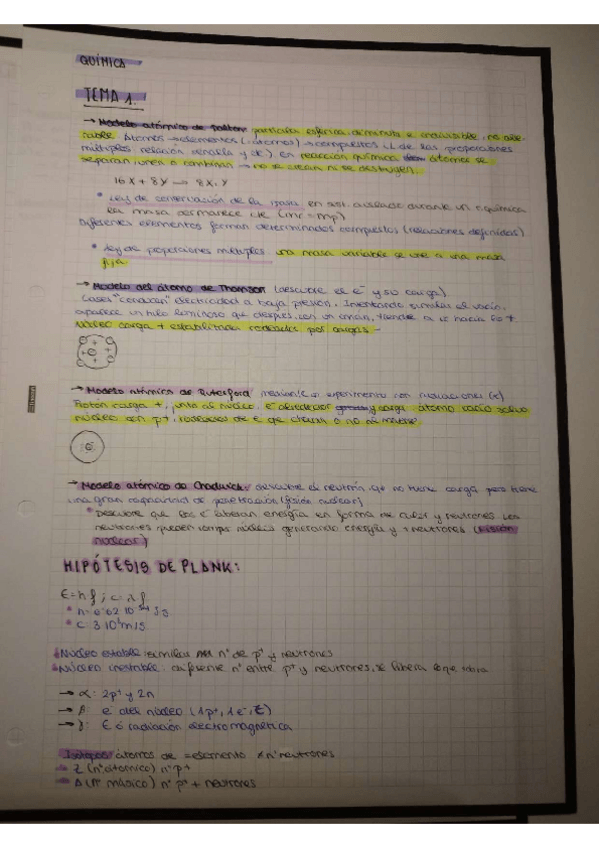 QUÍMICA
TEMA 1.
→ Modelo atómico de Dalton: partículas esférica, diminuta e indivisible, no
Átomos → elementos (átomos) → compuestos de las proporciones
múltiples relación sencilla y cte). en reacción química átomos se
separan, unen o combinan → no se crean ni se destruyen.
16 X + 8 Y → 8 X₂Y
• Ley de conservación de la masa, en durante un química
la masa permanece cte (mr = mp)
diferentes elementos forman determinados compuestos (relaciones definidas)
• Ley de proporciones múltiples. una masa variable se une a una masa
fija.
→ Modelo del átomo de Thomson (descubre el e⁻ y su carga)
Gases "conducen" electricidad a baja presión. Intentando simular el vacío,
aparece un hilo luminoso que después, con un imán, tiende a ir hacia lo +
Núcleo carga + estabilizada rodeadas por cargas -
→ Modelo atómico de Ruterford mediante experimento con radiaciones
Protón carga +, junto al núcleo, e⁻ alrededor y carga átomo vacío salvo
núcleo con p+, rodeados de e⁻ que o no
e⁻
→ Modelo atómico de Chadwick: descubre el neutrón, no tiene carga pero tiene
una gran capacidad de penetración (fisión nuclear)
• Descubre que los e⁻ liberan energía en forma de calor y neutrones. Los
neutrones pueden romper núcleos generando energía y + neutrones (Fisión
nuclear)
HIPÓTESIS DE PLANK:
E = h f ; c = λ f
• h = 6'62 10⁻³⁴ J s
• c: 3 10⁸ m/s
Núcleo estable: similar nº de p⁺ y neutrones
Núcleo inestable: diferente nº entre p⁺ y neutrones, se libera lo que sobra
→ α: 2p⁺ y 2n
→ β: e⁻ del núcleo (1p⁺, 1e⁻, E)
→ γ: E o radiación electromagnética
Isotopos: átomos de = elemento ≠ nº neutrones
→ Z (nº atómico) nº p+
→ A (nº másico) nº p⁺ + neutrones